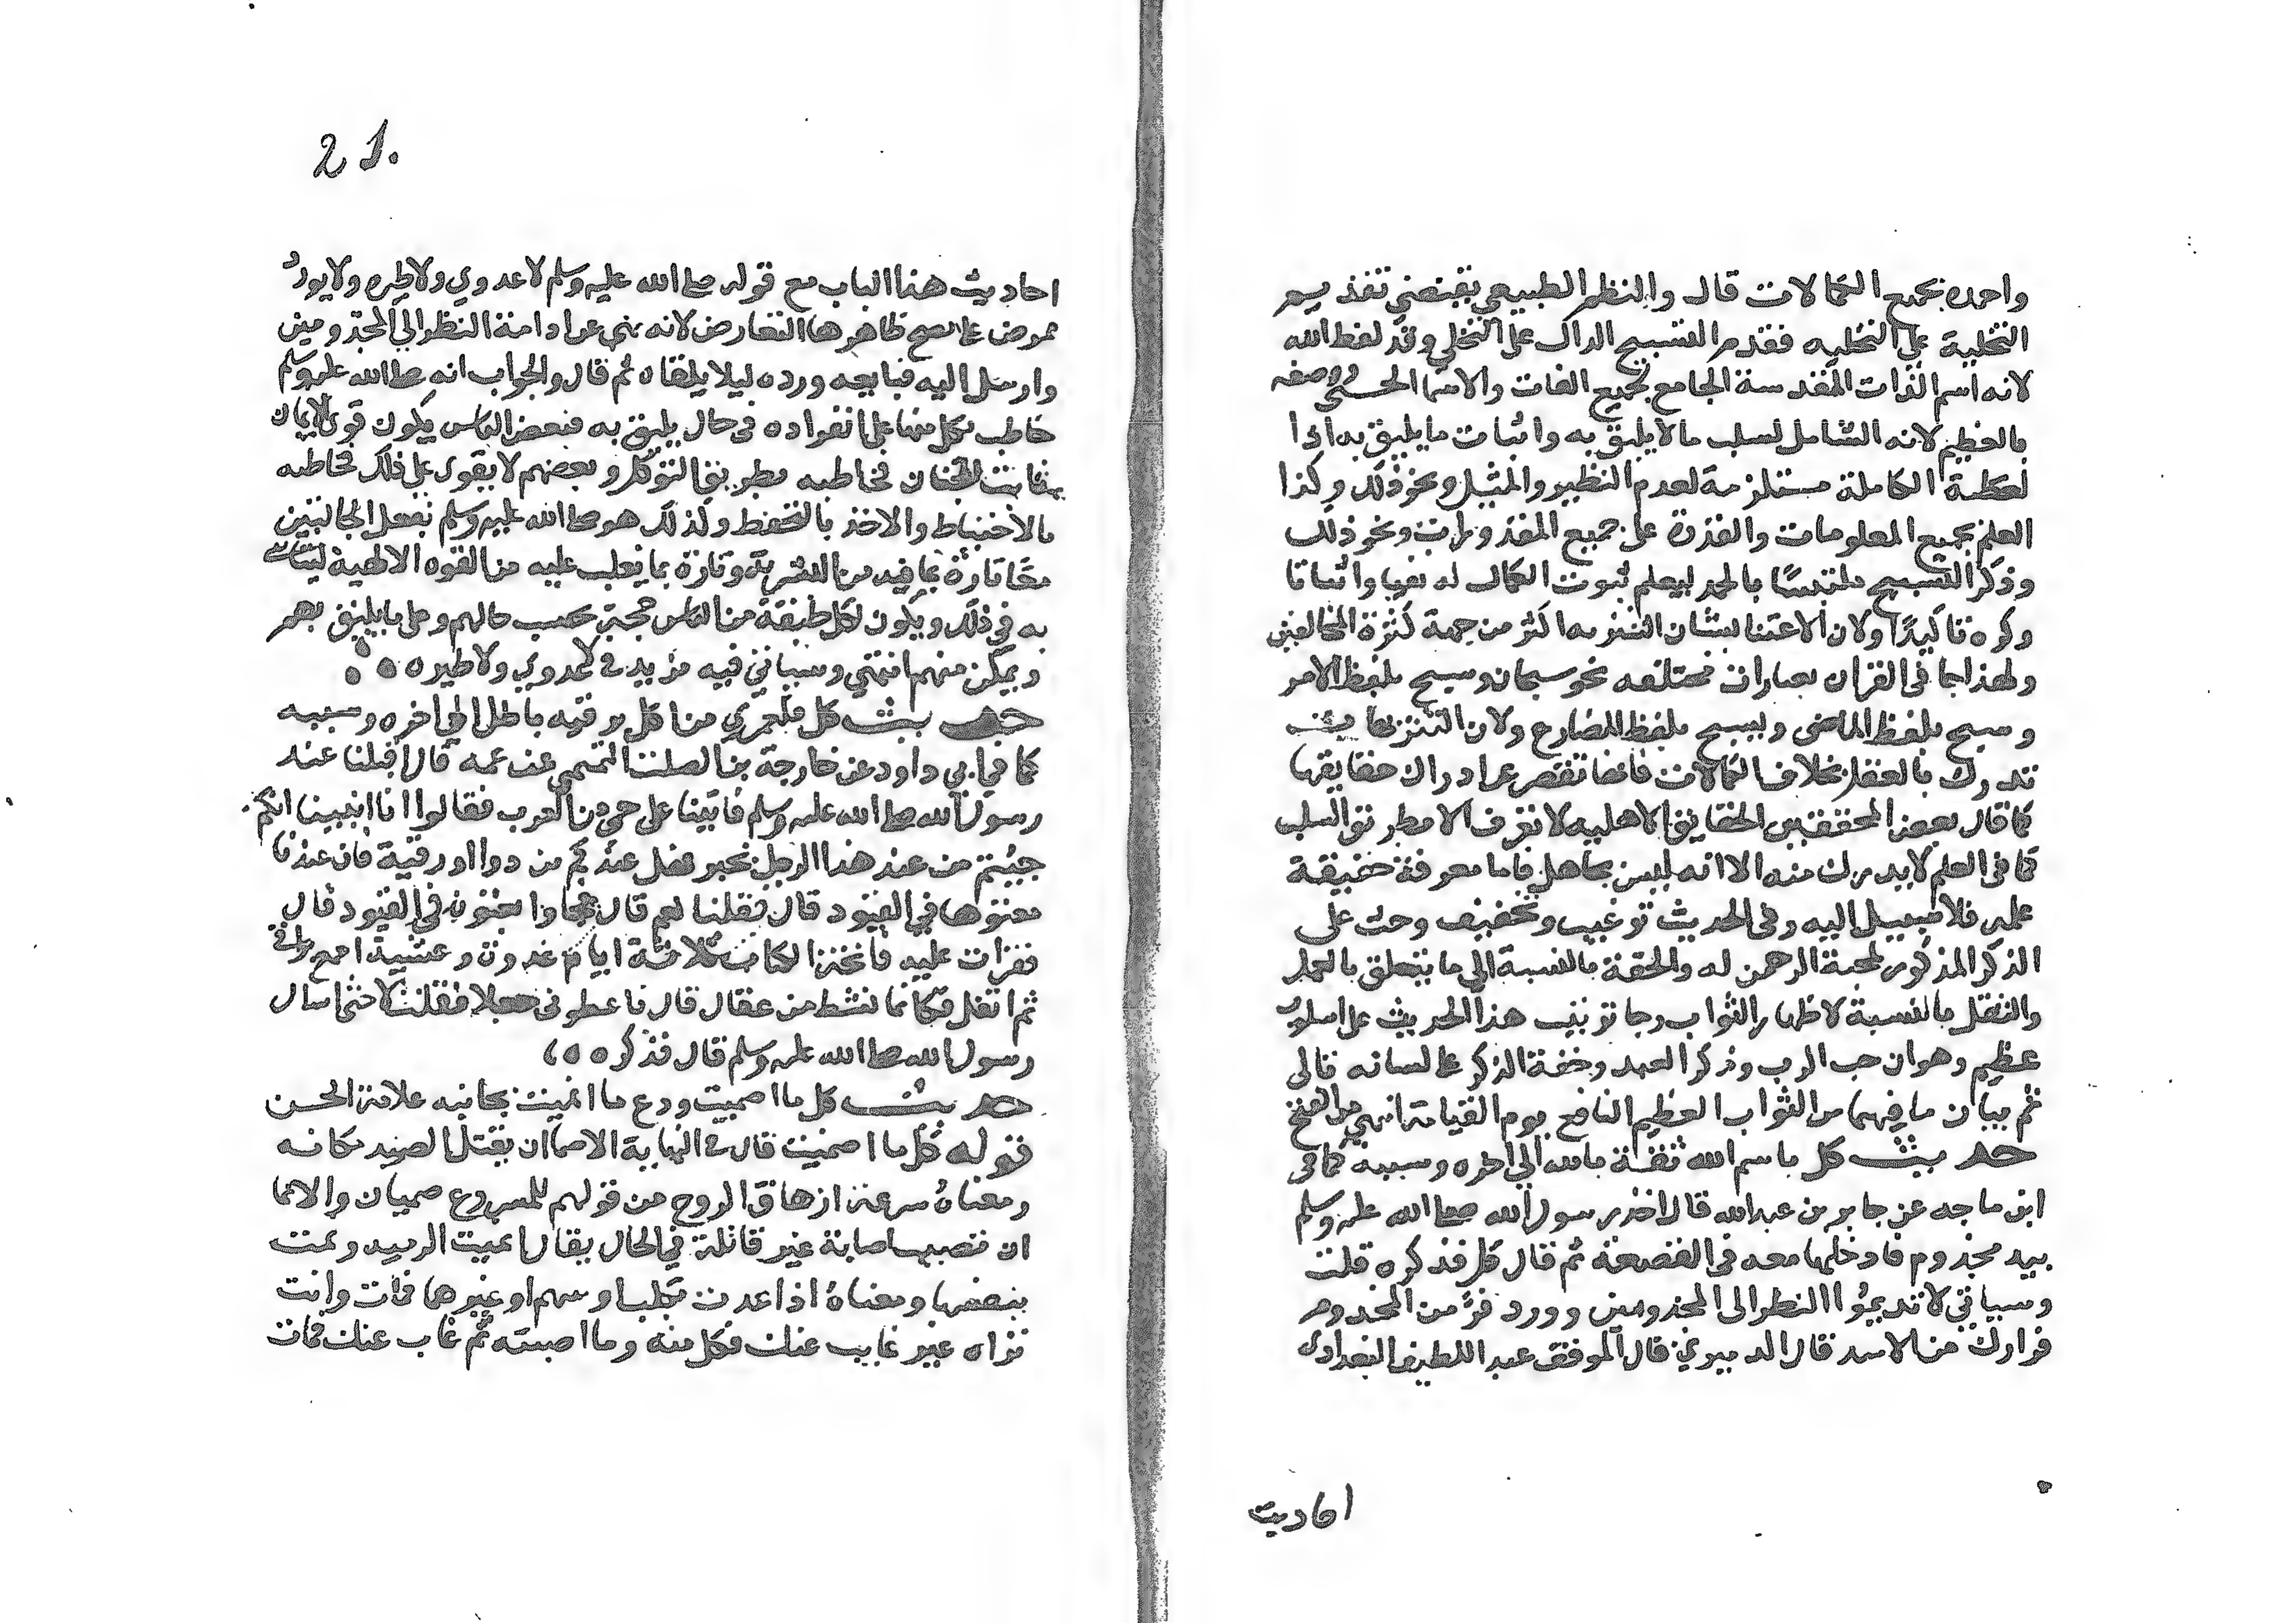 واحمده بجميع الكمالات قال والنظم الطبيعي يقتضي تقديم
التخلية على التحليه فقدم التسبيح الدال على التخلي وقدم لفظ الله
لانه اسم الذات المقدسة الجامع لجميع الصفات والاسما الحسنى ووصفه
بالعظيم لانه الشامل لسلب ما لا يليق به واثبات ما يليق به اذا
لعظمة الكاملة مستلزمة لعدم النظير والمثيل ونحو ذلك وكذا
العلم بجميع المعلومات والقدرة على جميع المقدورات ونحو ذلك
وذكر التسبيح ملتبسًا بالحمد ليعلم ثبوت الكمال له نفيا واثباتا
وكرره تاكيدًا ولان الاعتنا بشان التنزيه اكثر من جهة كثرة المخالفين
ولهذا جا في القران بعبارات مختلفه نحو سبحان وسبح بلفظ الامر
وسبح بلفظ الماضى ويسبح بلفظ المضارع ولان التنزيهات
تدرك بالعقل بخلاف الكمالات فانها تقصر عن ادراك حقايقها
كما قال بعض المحققين الحقايق الالهيه لا تعرف الا بطريق السلب
كما في العلم لا يدرك منه الا انه ليس بجاهل فاما معرفة حقيقة
علمه فلا سبيل اليه وفي الحديث ترغيب وتخفيف وحث على
الذكر المذكور لمحبة الرحمن له والخفة بالنسبة الى ما يتعلق بالعمل
والثقل بالنسبة لاظهار الثواب وجا ترتيب هذا الحديث على اسلوب
عظيم وهو ان حب الرب وذكر العبد وخفة الذكر على لسانه تالى
ثم بيان ما فيهما من الثواب العظيم النافع يوم القيامة انتهى من الفتح
حديث كل باسم الله ثقة بالله الى اخره وسببه كما في
ابن ماجه عن جابر بن عبد الله قال اخذ رسول الله صلى الله عليه وسلم
بيد مجذوم فادخلها معه في القصعة ثم قال كل فذكره قلت
وسياتي لا تديموا النظر الى المجذومين وورد فرَّ من المجذوم
فرارك من الاسد قال الدميري قال الموفق عبد اللطيف البغدادي
احاديث
21.
احاديث هذا الباب مع قوله صلى الله عليه وسلم لا عدوي ولا طيره ولا يورد
ممرض على مصح ظاهرها التعارض لانه نهى عن ادامة النظر الى المجذومين
وارسل اليه فبايعه ورده ليلا يلقاه ثم قال والجواب انه صلى الله عليه وسلم
خاطب بكل منهما على انفراده في حال يليق به فبعض الناس يكون قوي الايمان
ثابت الجنان فخاطبه بطريق التوكل وبعضهم لا يقوى على ذلك فخاطبه
بالاحتياط والاخذ بالتحفظ وكذلك هو صلى الله عليه وسلم يفعل الحالتين
معًا تارة بما فيه من البشرية وتارة بما يغلب عليه من القوه الالهية ليتاسى
به في ذلك ويكون لكل طبقة من الناس حجة بحسب حالهم وعلى ما يليق بهم
ويمكن منهم انتهي وسياتي فيه مزيد في لا عدوي ولا طيره
حديث كل فلعمري من اكل برقيه باطل الى اخره وسببه
كما في ابي داود عن خارجة بن الصلت التميمى عن عمه قال اقبلنا عند
رسول الله صلى الله عليه وسلم فاتينا على حي من العرب فقالوا انا انبينا انكم
جيتم من عند هذا الرجل بخير فهل عندكم من دوا او رقية فان عندنا
معتوها في القيود قال فقلنا نعم قال فجاوا بمعتوه في القيود قال
فقرات عليه فاتحة الكتاب ثلاثة ايام غدوة وعشية اجمع بزاقي
ثم اتفل فكانما نشط من عقال قال فاعطوني جعلا فقلت لا حتى اسال
رسول الله صلى الله عليه وسلم قال فذكره
حديث كل ما اصميت ودع ما انميت بجانبه علامة الحسن
قوله كل ما اصميت قال في النهاية الاصما ان يقتل الصيد مكانه
ومعناه سرعة ازهاق الروح من قولهم للمسرع صميان والانما
ان تصيب اصابة غير قاتلة في الحال يقال انميت الرميه ونمت
بنفسها ومعناه اذا صدت بكلب او سهم او غيرها فمات وانت
تراه غير غايب عنك فكل منه وما اصبته ثم غاب عنك فمات